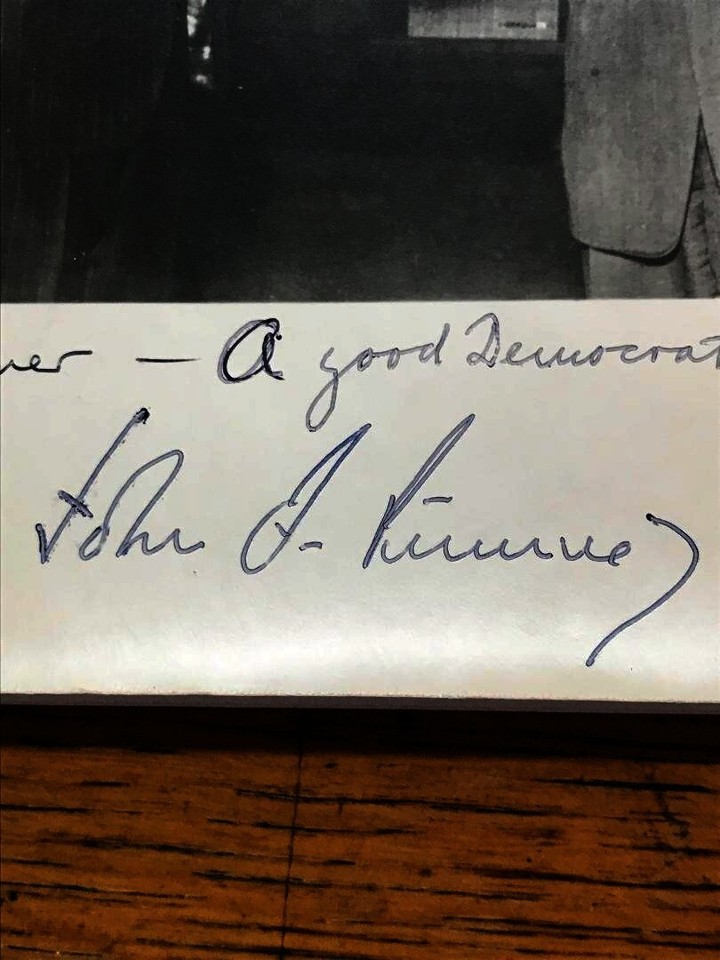 ner — A good Democrat
John J. Kinney